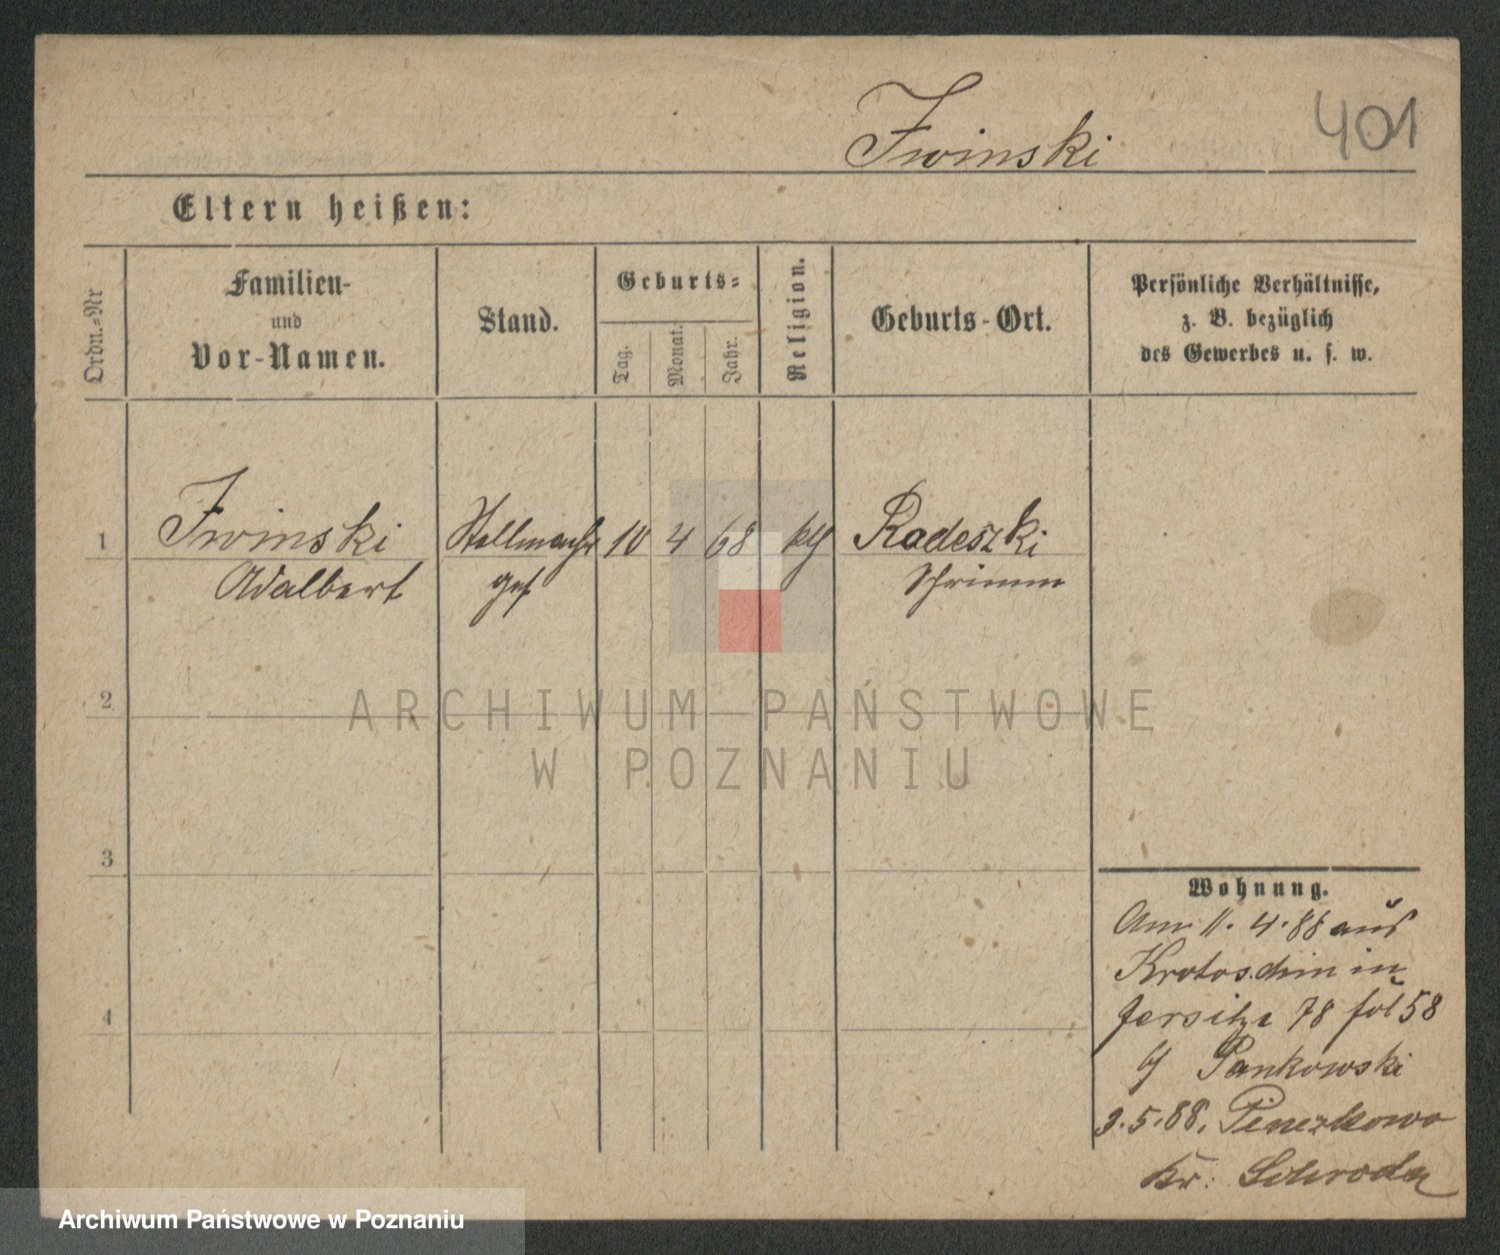 Iwinski
401
Eltern heißen:
Ordn.=Nr
Familien-
und
Vor-Namen.
Stand.
Geburts=
Tag.
Monat.
Jahr.
Religion.
Geburts-Ort.
Persönliche Verhältnisse,
z. B. bezüglich
des Gewerbes u. s. w.
1
Iwinski
Adalbert
Stellmacher
ges
10
4
68
klg
Radeszki
Schrimm
2
3
4
Wohnung.
Am 11. 4. 88 aus
Krotoschin in
Jersitz 78 fol 58
Pankowski
3. 5. 88. Pienczkowo
Kr. Schroda
ARCHIWUM PAŃSTWOWE
W POZNANIU
Archiwum Państwowe w Poznaniu